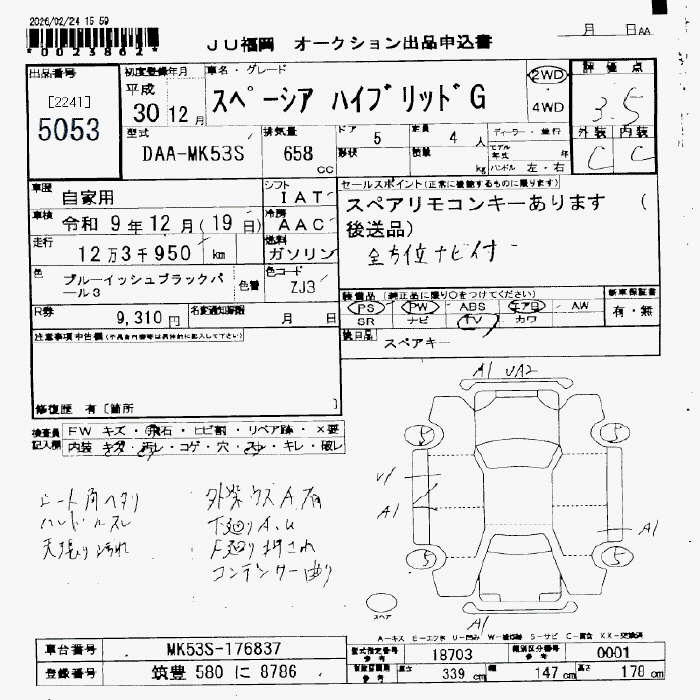 2026/02/24 15 59
*0023862*
月 日 AA
JU福岡 オークション出品申込書
出品番号
[2241]
5053
初度登録年月
平成
30 12 月
車名・グレード
スペーシア ハイブリッドG
2WD
4WD
評価点
3.5
外装 内装
C C
型式
DAA-MK53S
排気量
658 CC
ドア
5
形状
定員
4 人
積載
kg
ディーラー・並行
モデル年式 年
ハンドル 左・右
車歴
自家用
シフト
IAT
車検
令和 9年 12月(19日)
冷房
AAC
走行
12万3千950 km
燃料
ガソリン
色
ブルーイッシュブラックパール3
色番
色コード
ZJ3
R券
9,310 円
名変通知期限
月 日
セールスポイント(正常に機能するものに限ります)
スペアリモコンキーあります (
後送品)
全方位ナビ付
装備品 (純正品に限り○をつけてください)
PS PW ABS エアB AW
SR ナビ TV カワ
新車保証書
有・無
後日品
スペアキー
注意事項申告欄
修復歴 有 [箇所 ]
検査員記入欄
FW キズ・飛石・ヒビ割・リペア跡・X要
内装 キズ・汚レ・コゲ・穴・スレ・キレ・破レ
シート角ヘタリ
ハンドルスレ
天張り汚れ
外装ウスA有
下廻りA.U
F廻り押され
コンデンサー曲り
A1 UA2
5 5
A1
A1
5 5
A1
スペア
A-キズ E-エクボ U-凹み W-補修跡 S-サビ C-腐食 XX-交換済
車台番号
MK53S-176837
登録番号
筑豊 580 に 8786
型式指定番号
参考
18703
類別区分番号
参考
0001
長さ
339 cm
幅
147 cm
高さ
178 cm